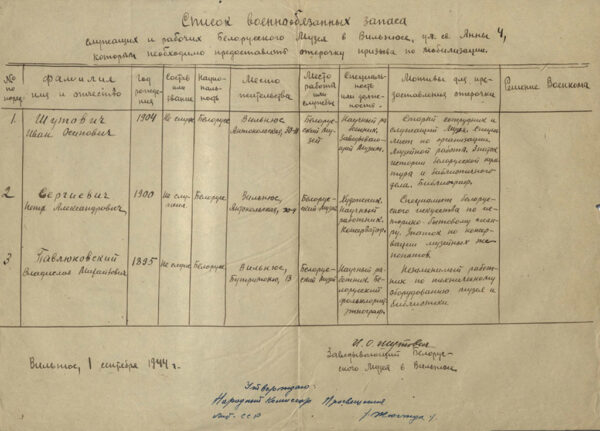 Список военнообязанных запаса
служащих и рабочих Белорусского Музея в Вильнюсе, ул. св. Анны 4,
которым необходимо предоставить отсрочку призыва по мобилизации.
№ по поряд.
Фамилия имя и отчество
Год рождения
Состав или звание
Национальность
Место жительства
Место работы или службы
Специальность или должность.
Мотивы для предоставления отсрочки
Решение Военкома
1.
Шутович
Иван Осипович
1904
Не служ.
Белорус
Вильнюс,
Антокольская,
Белорусский Музей
Научный работник. Заведывающий Музеем.
Старый сотрудник и
служащий Музея. Специалист по организации
Музейной работы. Знаток
истории белорусской культуры и библиотечного
дела. Библиограф.
2
Сергиевич
Петр Александрович
1900
Не служил
Белорус
Вильнюс,
Антокольская,
Белорусский Музей
Художник.
Научный
работник.
Консерватор.
Специалист белорусского искусства по историко-бытовому жанру. Знаток по консервации музейных экспонатов.
3
Павлюковский
Владислав
1895
Не служ.
Белорус
Вильнюс,
13
Белорусский Музей
Научный работник. Белорусский
фольклорист
этнограф.
Незаменимый работник по техническому
оборудованию музея и
библиотеки
Вильнюс, 1 сентября 1944 г.
И. О. Шутович
Заведывающий Белорусского Музея в Вильнюсе.
Утверждаю:
Народный Комиссар Просвещения
Лит. ССР